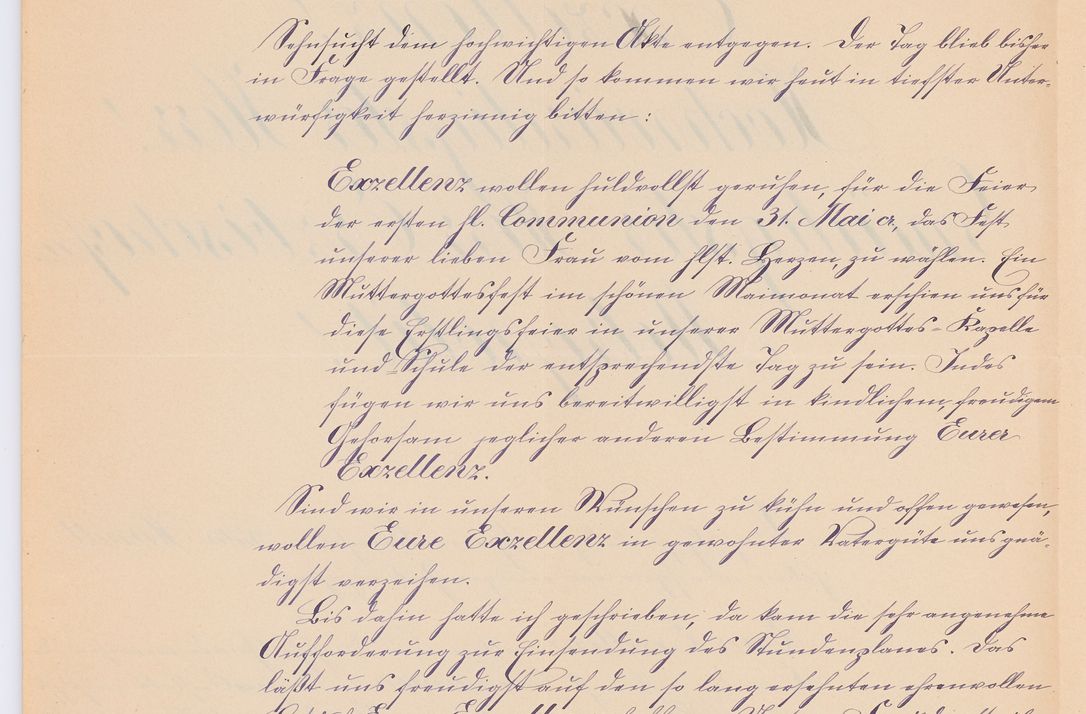 Sehnsucht dem hochwichtigen Akte entgegen. Der Tag blieb bisher
in Frage gestellt. Und so kommen wir heut in tiefster Unter-
würfigkeit herzinnig bitten:
Exzellenz wollen huldvollst geruhen, für die Feier
der ersten hl. Communion den 31. Mai cr., das Fest
unserer lieben Frau vom hlst. Herzen, zu wählen. Ein
Muttergottesfest im schönen Maimonat erschien uns für
diese Erstlingsfeier in unserer Muttergottes-Kapelle
und Schule der entsprechendste Tag zu sein. Indes
fügen wir uns bereitwilligst in kindlichem, freudigem
Gehorsam jeglicher anderen Bestimmung Eurer
Exzellenz.
Sind wir in unseren Wünschen zu kühn und offen gewesen,
wollen Eure Exzellenz in gewohnter Vatergüte uns gnä-
digst verzeihen.
Bis dahin hatte ich geschrieben, da kam die sehr angenehme
Aufforderung zur Einsendung des Stundenplanes. Das
läßt uns freudigst auf den so lang ersehnten ehrenvollen